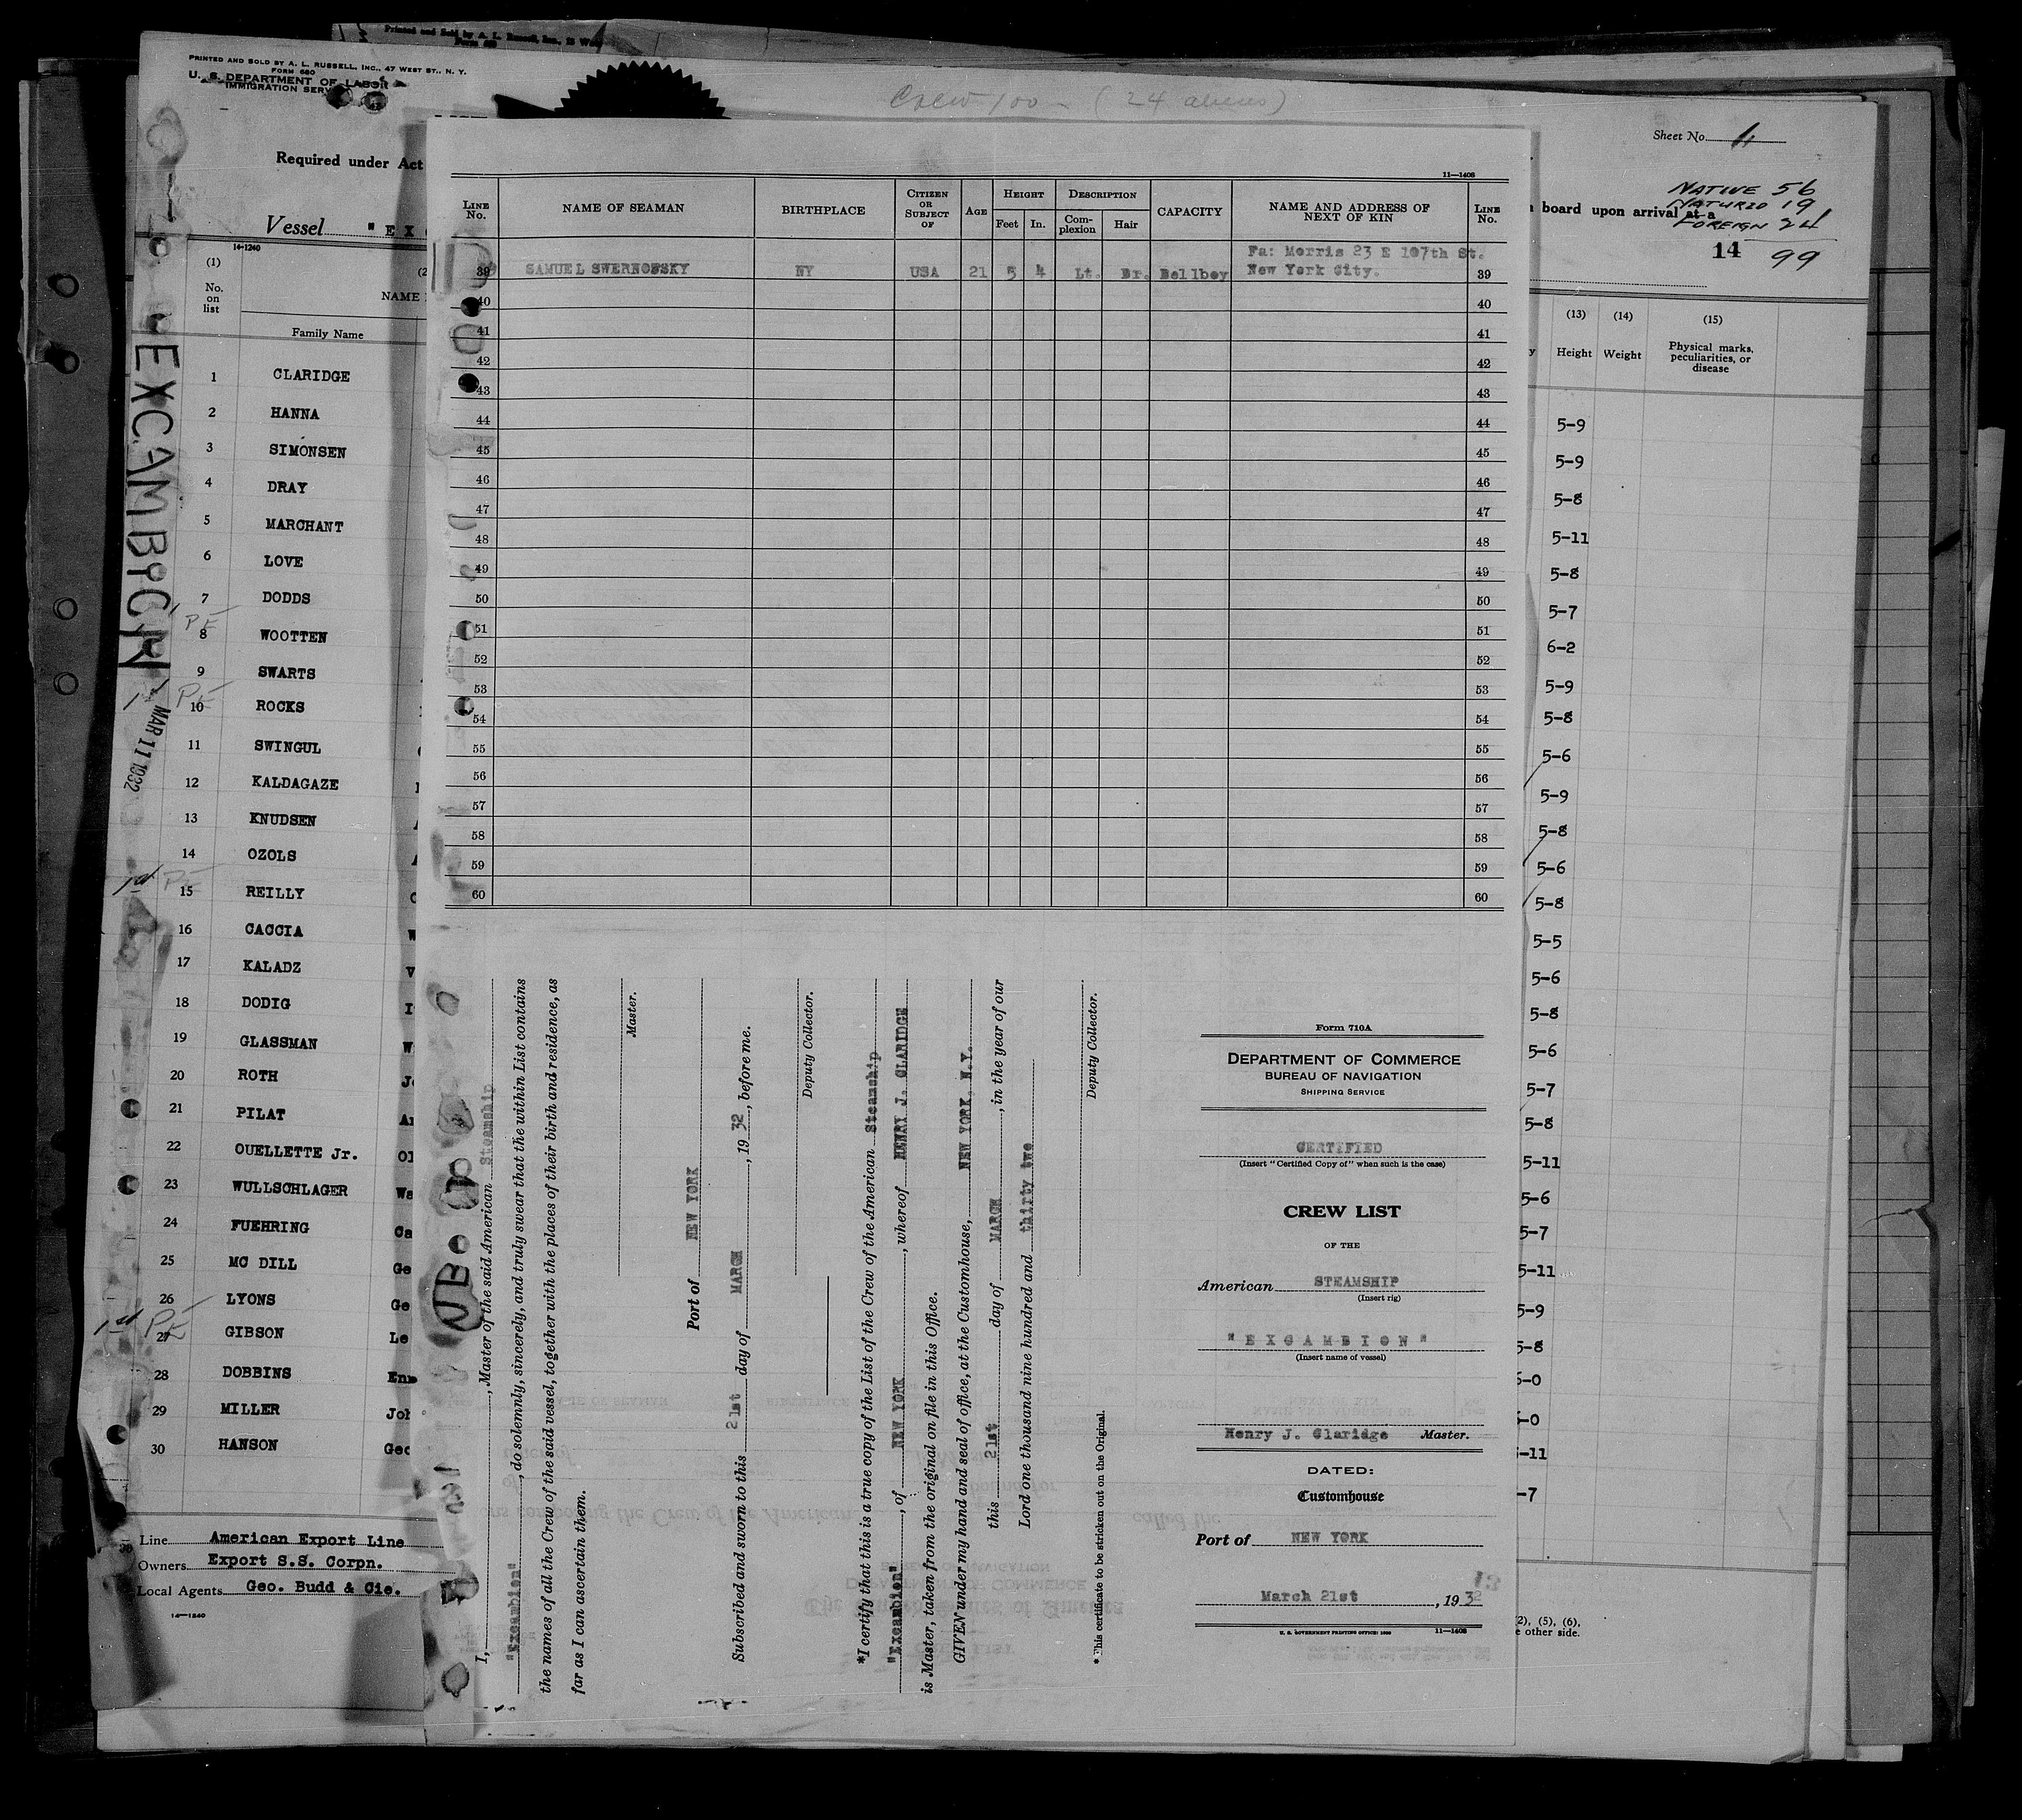 Printed and Sold by A. L. Russell, Inc.,
PRINTED AND SOLD BY A. L. RUSSELL, INC., 47 WEST ST., N. Y.
FORM 680
U. S. DEPARTMENT OF LABOR
IMMIGRATION SERV
Crew 100 - (24 aliens)
Sheet No. 1
Required under Act
board upon arrival at a
NATIVE 56
NATURZD 19
FOREIGN 24
99
14
Vessel "EXC
14-1240
(1)
No.
on
list
(2
NAME
Family Name
1 CLARIDGE
2 HANNA
3 SIMONSEN
4 DRAY
5 MARCHANT
6 LOVE
7 DODDS
PE
8 WOOTTEN
9 SWARTS
1st PE
10 ROCKS
11 SWINGUL
12 KALDAGAZE
13 KNUDSEN
14 OZOLS
1st PE
15 REILLY
16 CACCIA
17 KALADZ
18 DODIG
19 GLASSMAN
20 ROTH
21 PILAT
22 OUELLETTE Jr.
23 WULLSCHLAGER
24 FUEHRING
25 MC DILL
26 LYONS
1st PE
27 GIBSON
28 DOBBINS
29 MILLER
30 HANSON
Line American Export Line
Owners Export S.S. Corpn.
Local Agents Geo. Budd & Cie.
14-1240
EXCAMBION
MAR 11 1932
11—1408
LINE No.
NAME OF SEAMAN
BIRTHPLACE
CITIZEN OR SUBJECT OF
AGE
HEIGHT
Feet
In.
DESCRIPTION
Com-plexion
Hair
CAPACITY
NAME AND ADDRESS OF NEXT OF KIN
LINE No.
Fa: Morris 23 E 107th St.
39 SAMUEL SWERNOFSKY NY USA 21 5 4 Lt. Br. Bellboy New York City. 39
40 40
41 41
42 42
43 43
44 44
45 45
46 46
47 47
48 48
49 49
50 50
51 51
52 52
53 53
54 54
55 55
56 56
57 57
58 58
59 59
60 60
I, , Master of the said American Steamship
"Excambion" , do solemnly, sincerely, and truly swear that the within List contains
the names of all the Crew of the said vessel, together with the places of their birth and residence, as
far as I can ascertain them.
Master.
Port of NEW YORK
Subscribed and sworn to this 21st day of MARCH , 19 32 , before me.
Deputy Collector.
*I certify that this is a true copy of the List of the Crew of the American Steamship
"Excambion" , of NEW YORK , whereof HENRY J. CLARIDGE
is Master, taken from the original on file in this Office.
GIVEN under my hand and seal of office, at the Customhouse, NEW YORK, N.Y.
this 21st day of MARCH , in the year of our
Lord one thousand nine hundred and thirty two
Deputy Collector.
* This certificate to be stricken out on the Original.
Form 710A
DEPARTMENT OF COMMERCE
BUREAU OF NAVIGATION
SHIPPING SERVICE
CERTIFIED
(Insert "Certified Copy of" when such is the case)
CREW LIST
OF THE
American STEAMSHIP
(Insert rig)
"EXCAMBION"
(Insert name of vessel)
Henry J. Claridge Master.
DATED:
Customhouse
Port of NEW YORK
March 21st , 1932
U. S. GOVERNMENT PRINTING OFFICE: 1930 11—1408
(13)
Height
(14)
Weight
(15)
Physical marks, peculiarities, or disease
5-9
5-9
5-8
5-11
5-8
5-7
6-2
5-9
5-8
5-6
5-9
5-8
5-6
5-8
5-5
5-6
5-8
5-6
5-7
5-8
5-11
5-6
5-7
5-11
5-9
5-8
-0
-0
-11
-7
(2), (5), (6),
e other side.